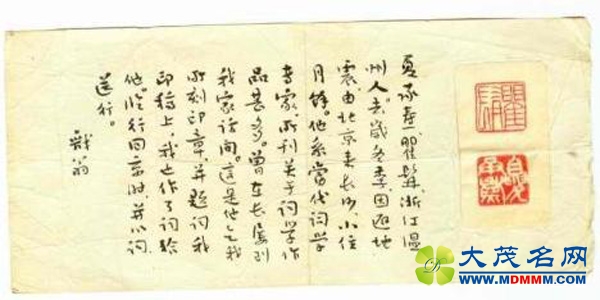 瞿髯
夏承焘
夏承焘，瞿髯，浙江温
州人。去岁冬季因避地
震，由北京来长沙，小住
月馀。他系当代词学
专家，所刊关于词学作
品甚多。曾在长屡到
我家访问。这是他乞我
所刻印章，并题词我
印稿上，我也作了词给
他。临行回京时，并以词
送行。
戡翁
大茂名网
MDMMM.COM